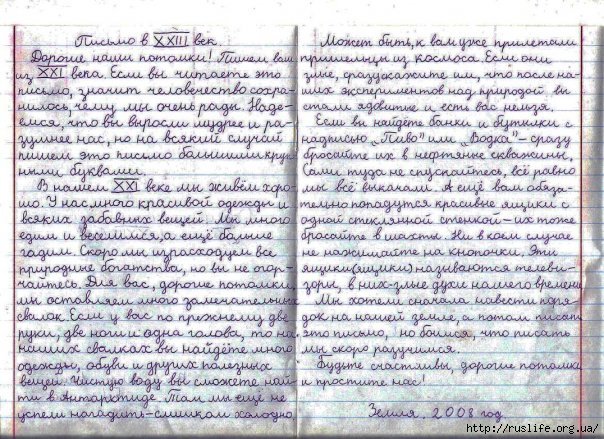 Письмо в XXIII век.
Дорогие наши потомки! Пишем вам
из XXI века. Если вы читаете это
письмо, значит человечество сохра-
нилось, чему мы очень рады. Наде-
емся, что вы выросли мудрее и ра-
зумнее нас, но на всякий случай
пишем это письмо большими круп-
ными буквами.
В нашем XXI веке мы живём хоро-
шо. У нас много красивой одежды и
всяких забавных вещей. Мы много
едим и веселимся, а ещё больше
гадим. Скоро мы израсходуем все
природные богатства, но вы не огор-
чайтесь. Для вас, дорогие потомки,
мы оставляем много замечательных
свалок. Если у вас по прежнему две
руки, две ноги и одна голова, то на
наших свалках вы найдёте много
одежды, обуви и других полезных
вещей. Чистую воду вы сможете най-
ти в Антарктиде. Там мы ещё не
успели нагадить-слишком холодно.
Может быть, к вам уже прилетали
пришельцы из космоса. Если они
злые, сразу скажите им, что после на-
ших экспериментов над природой вы
стали ядовитые и есть вас нельзя.
Если вы найдёте банки и бутылки с
надписью „Пиво" или „Водка"- сразу
бросайте их в нефтяные скважины.
Сами туда не спускайтесь, всё равно
мы всё выкачали. А ещё вам обяза-
тельно попадутся красивые ящики с
одной стеклянной стенкой-их тоже
бросайте в шахты. Ни в коем случае
не нажимайте на кнопочки. Эти
ящики(ящики) называются телеви-
зоры, в них-злые духи нашего времени.
Мы хотели сначала навести поря-
док на нашей земле, а потом писать
это письмо, но боимся, что писать
мы скоро разучимся.
Будьте счастливы, дорогие потомки
и простите нас!
Земля, 2008 год.
http://ruslife.org.ua/